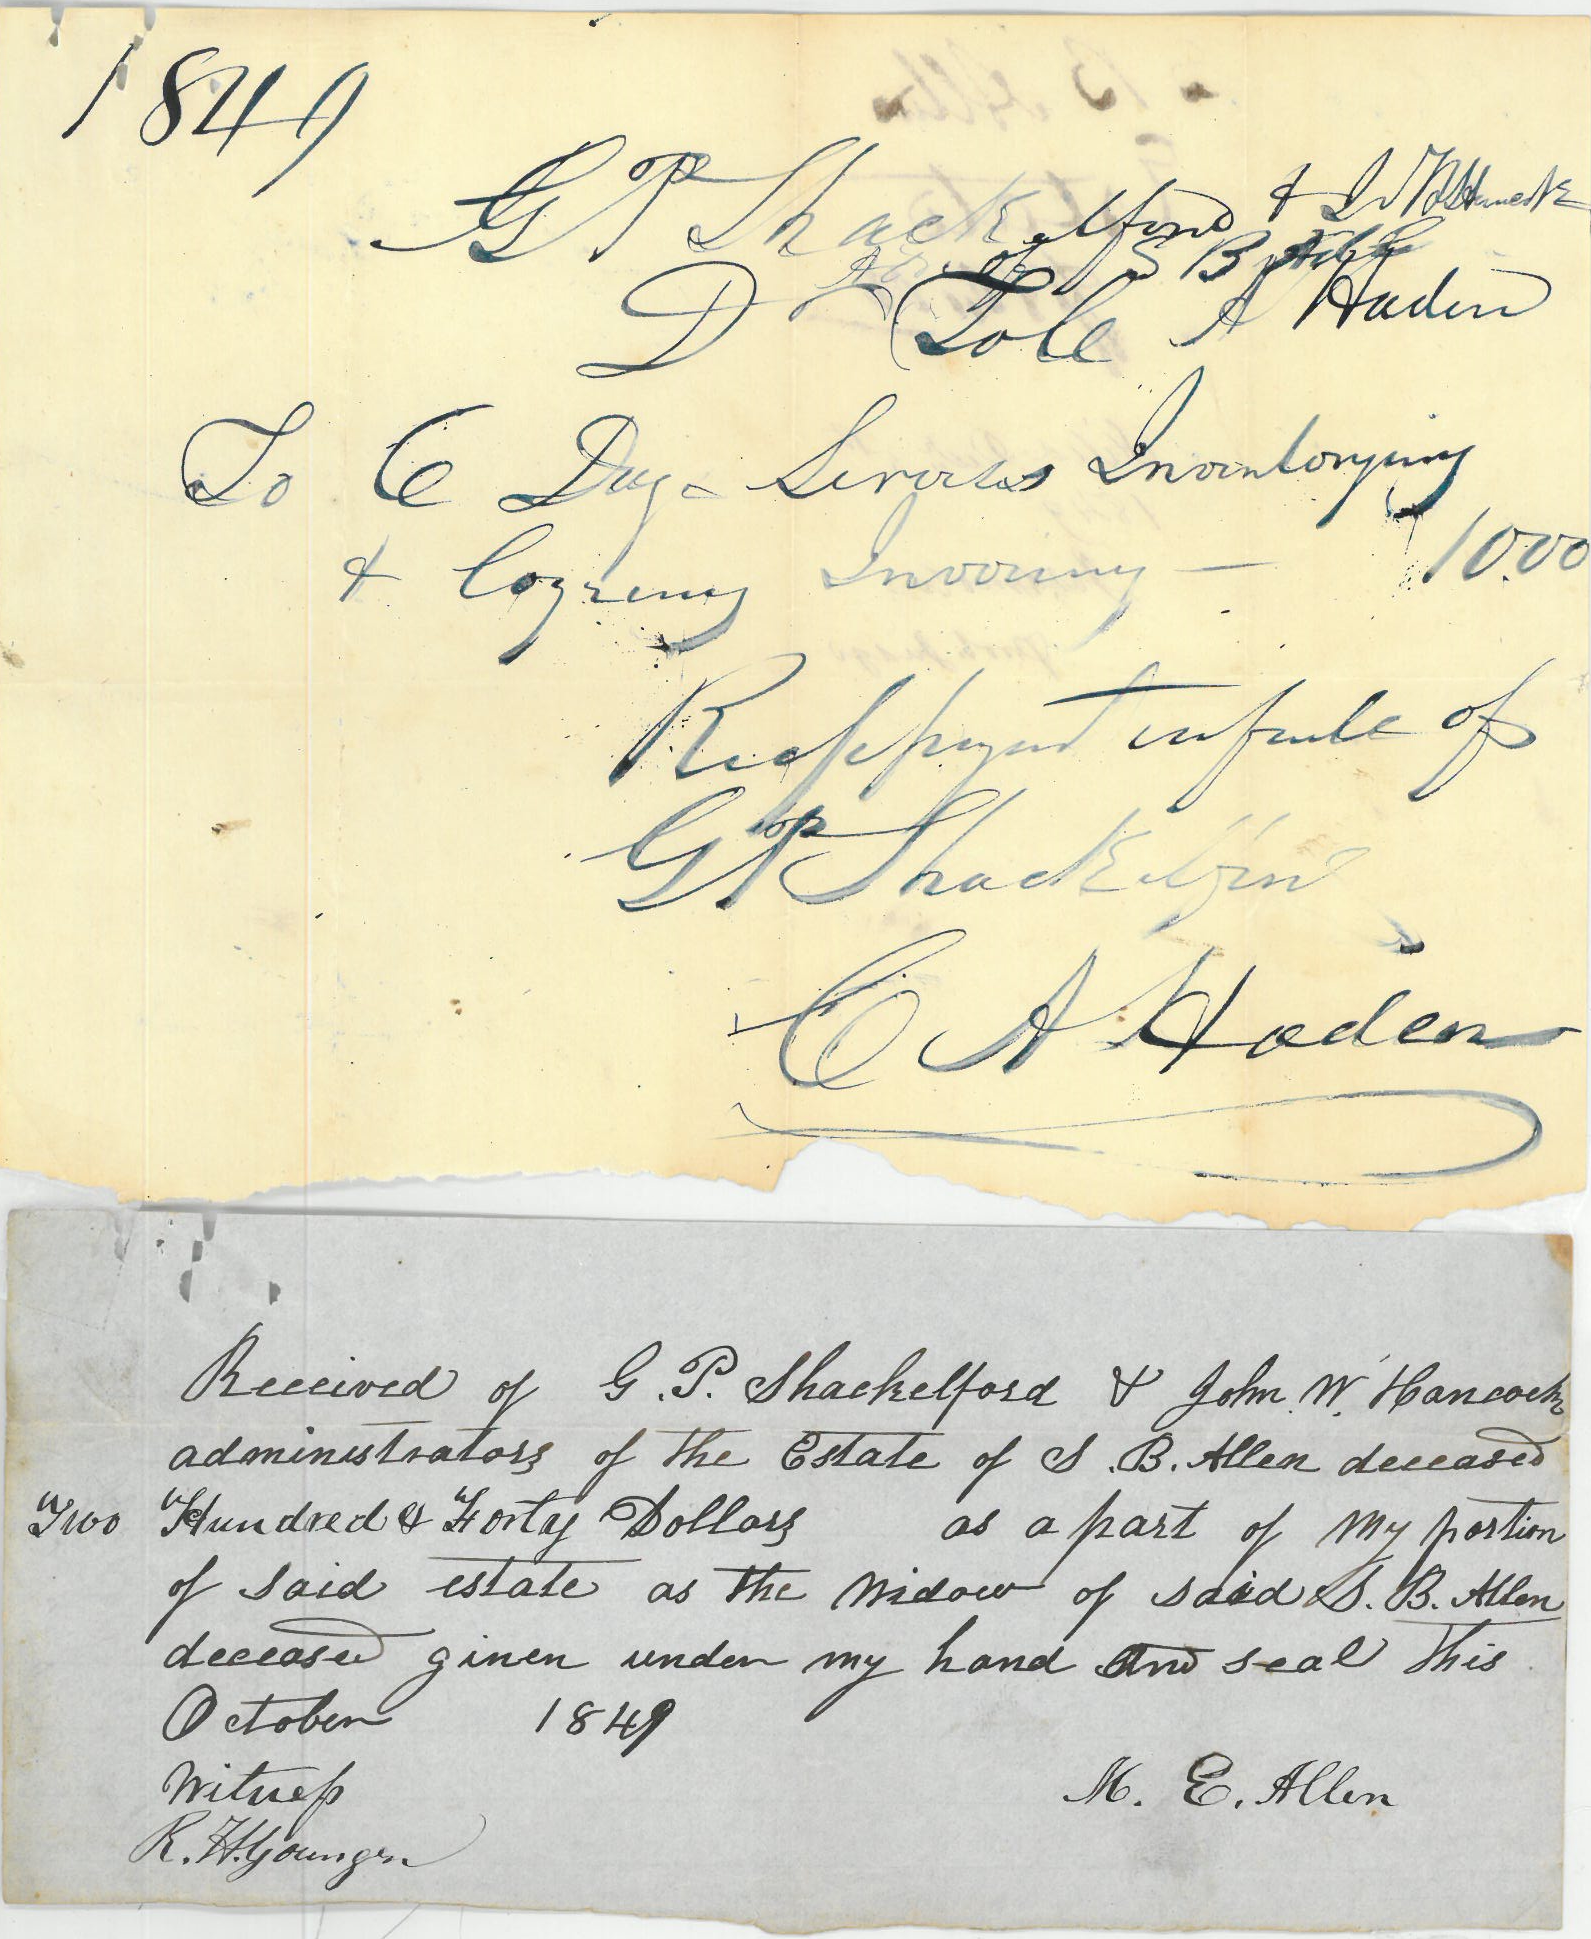 1849
G P Shackelford & J W Hancock
of S B
D To C A Haden
To 6 Days Servises Inventorying
& Copying Invoising — 10.00
Recd payment in full of
G P Shackelford
C A Haden
Received of G. P. Shackelford & John. W. Hancock
administrators of the Estate of S. B. Allen deceased
Two Hundred & Forty Dollars as a part of my portion
of said estate as the widow of said S. B. Allen
deceased given under my hand and seal this
October 1849
Witness M. E. Allen
R. H. Younger